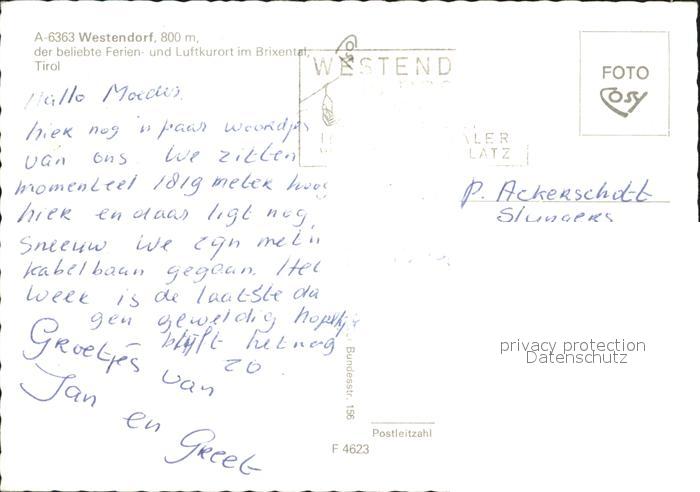 A-6363 Westendorf, 800 m,
der beliebte Ferien- und Luftkurort im Brixental,
Tirol
WESTEND
ALER
LATZ
FOTO
Cosy
Hallo Moeders.
hier nog 'n paar woordjes
van ons. We zitten
momenteel 1819 meter hoog
hier en daar ligt nog
sneeuw we zijn met 'n
kabelbaan gegaan. Het
week is de laatste da
gen geweldig hopelijk
blijft het nog
zo.
Groetjes van
Jan
en
Greet
P. Ackerschott
privacy protection
Datenschutz
Bundesstr. 156
Postleitzahl
F 4623